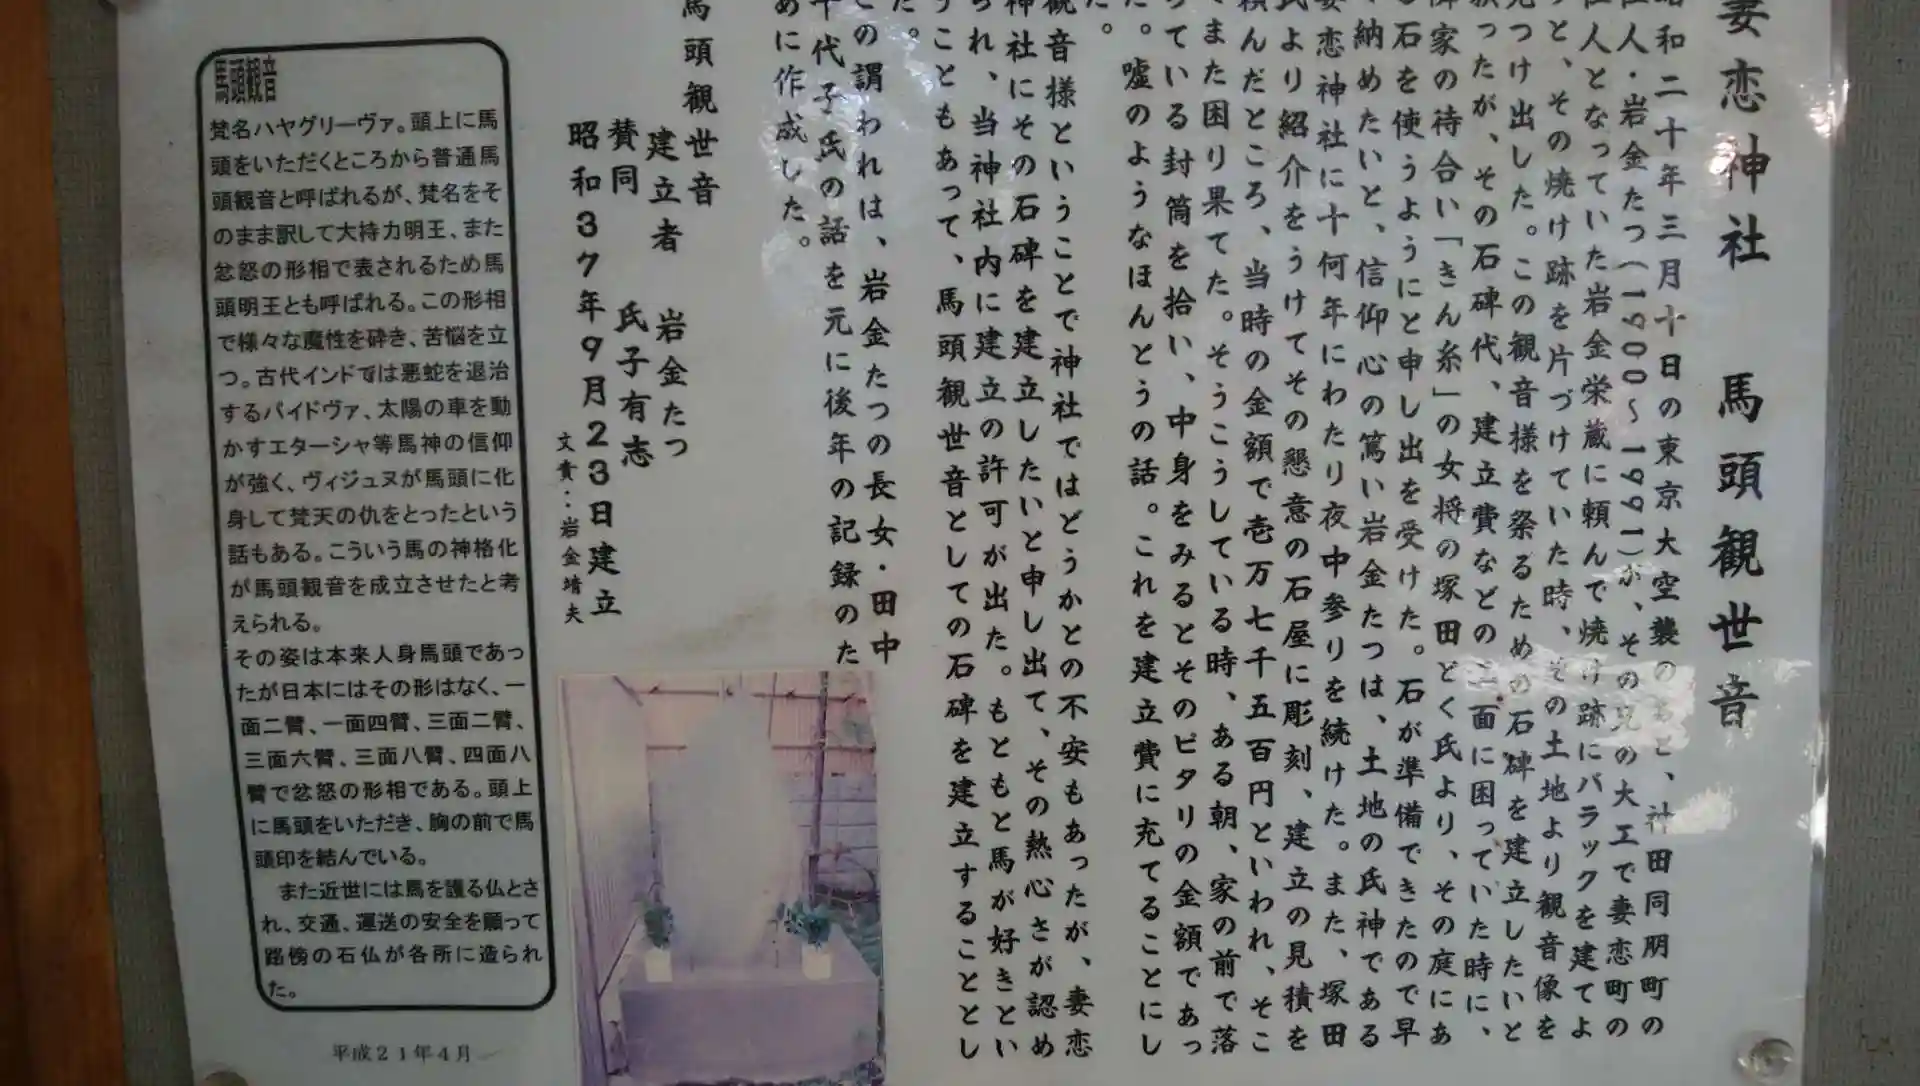 妻恋神社 馬頭観世音
昭和二十年三月十日の東京大空襲のあと、神田同朋町の
住人・岩金たつ(1900～1991)が、その兄の大工で妻恋町の
住人となっていた岩金栄蔵に頼んで焼け跡にバラックを建てよ
うと、その焼け跡を片づけていた時、その土地より観音像を
見つけ出した。この観音様を祭るための石碑を建立したいと
願ったが、その石碑代、建立費などの工面に困っていた時に、
隣家の待合い「きん糸」の女将の塚田とく氏より、その庭にあ
る石を使うようにと申し出を受けた。石が準備できたので早
く納めたいと、信仰心の篤い岩金たつは、土地の氏神である
妻恋神社に十何年にわたり夜中参りを続けた。また、塚田
氏より紹介をうけてその懇意の石屋に彫刻、建立の見積を
頼んだところ、当時の金額で壱万七千五百円といわれ、そこ
でまた困り果てた。そうこうしている時、ある朝、家の前で落
ちている封筒を拾い、中身をみるとそのピタリの金額であっ
た。嘘のようなほんとうの話。これを建立費に充てることにし
た。
観音様ということで神社ではどうかとの不安もあったが、妻恋
神社にその石碑を建立したいと申し出て、その熱心さが認め
られ、当神社内に建立の許可が出た。もともと馬が好きとい
うこともあって、馬頭観世音としての石碑を建立することとし
た。
この謂われは、岩金たつの長女・田中
千代子氏の話を元に後年の記録のた
めに作成した。
馬頭観世音
建立者 岩金たつ
賛同 氏子有志
昭和37年9月23日建立
文責：岩金靖夫
馬頭観音
梵名ハヤグリーヴァ。頭上に馬
頭をいただくところから普通馬
頭観音と呼ばれるが、梵名をそ
のまま訳して大持力明王、また
忿怒の形相で表されるため馬
頭明王とも呼ばれる。この形相
で様々な魔性を砕き、苦悩を立
つ。古代インドでは悪蛇を退治
するパイドヴァ、太陽の車を動
かすエターシャ等馬神の信仰
が強く、ヴィジュヌが馬頭に化
身して梵天の仇をとったという
話もある。こういう馬の神格化
が馬頭観音を成立させたと考
えられる。
その姿は本来人身馬頭であっ
たが日本にはその形はなく、一
面二臂、一面四臂、三面二臂、
三面六臂、三面八臂、四面八
臂で忿怒の形相である。頭上
に馬頭をいただき、胸の前で馬
頭印を結んでいる。
また近世には馬を護る仏とさ
れ、交通、運送の安全を願って
路傍の石仏が各所に造られ
た。
平成21年4月